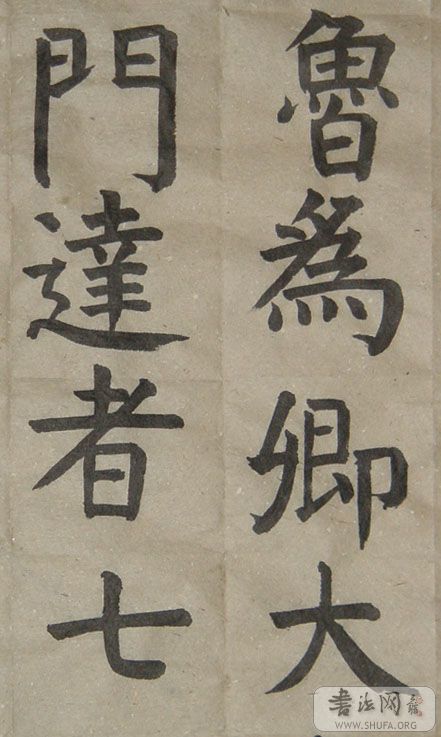 魯為卿大
門達者七
書法网
WWW.SHUFA.ORG